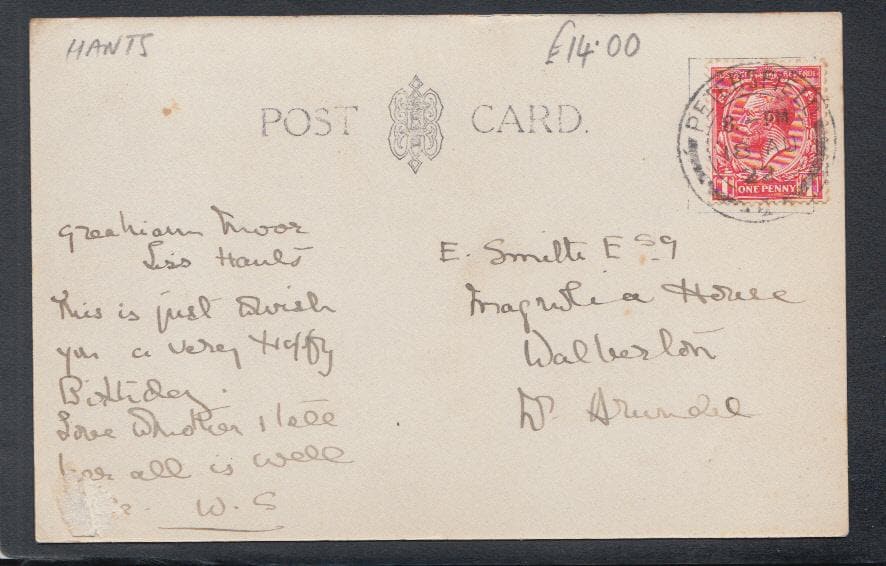 HANTS
£14.00
POST CARD.
PETERSFIELD
8 PM
AU
22
ONE PENNY
Greatham Moor
Liss Hants
This is just to wish
you a very Happy
Birthday.
Love to Mother & tell
her all is well
W.S
E. Smith Esq
Magnolia House
Walberton
Nr Arundel